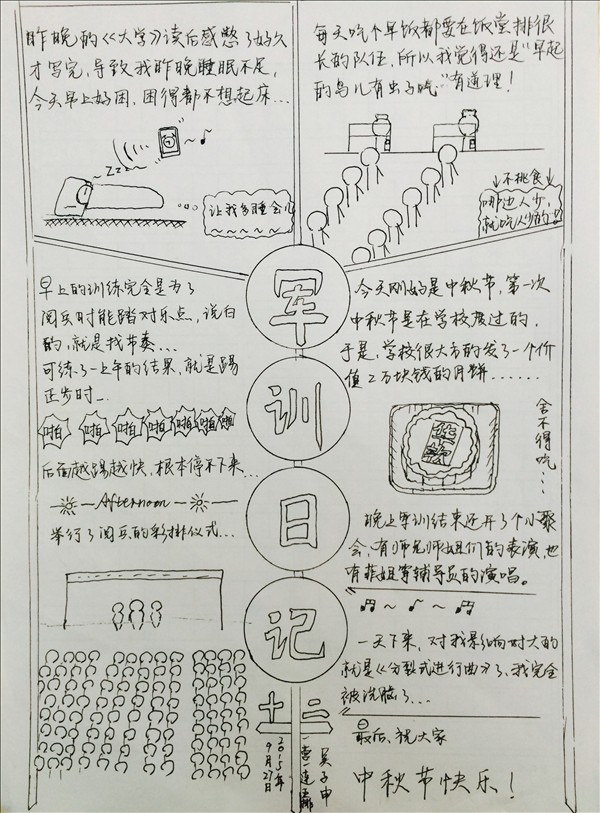 昨晚的《大学》读后感憋了好久
才写完，导致我昨晚睡眠不足，
今天早上好困，困得都不想起床…
~zzz~
让我多睡会儿
~~~~~
每天吃个早饭都要在饭堂排很
长的队伍，所以我觉得还是"早起
的鸟儿有虫子吃"有道理！
↓不挑食↓
哪边人少，
就吃人少的!!
军训日记
早上的训练完全是为了
阅兵时能踏对乐点，说白
的，就是找节奏…
可练了一上午的结果，就是踢
正步时…
啪 啪 啪 啪 啪 啪 啪
后面越踢越快，根本停不下来…
Afternoon
举行了阅兵的彩排仪式…
今天刚好是中秋节，第一次
中秋节是在学校度过的，
于是，学校很大方的发了一个价
值2万块钱的月饼……
华软
舍不得吃…
晚上军训结束还开了个小聚
会，有师兄师姐们的表演，也
有菲姐等辅导员的演唱。
一天下来，对我影响对大的
就是《分裂式进行曲》了，我完全
被洗脑了…
最后，祝大家
中秋节快乐！
十二
2015年
9月27日